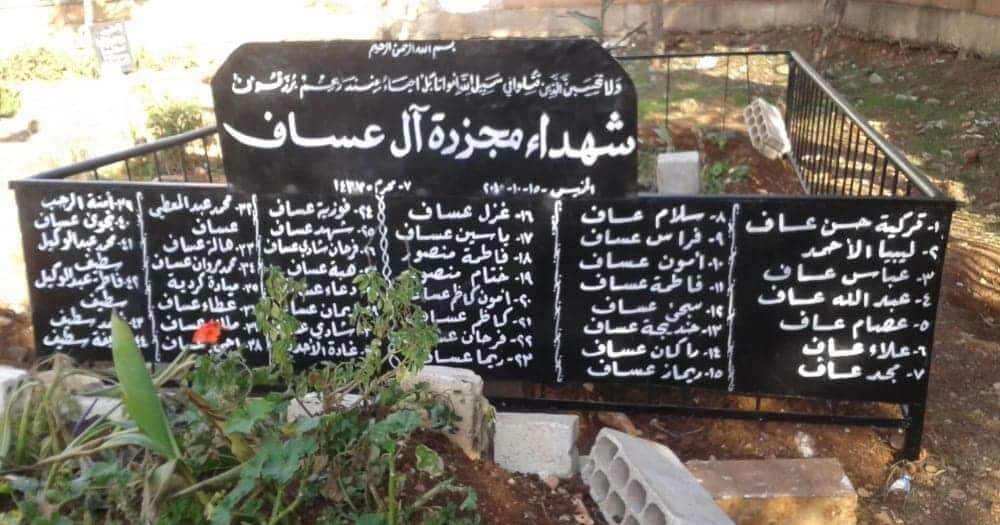 بسم الله الرحمن الرحيم
ولا تحسبن الذين قتلوا في سبيل الله أمواتا بل احياء عند ربهم يرزقون
شهداء مجزرة آل عساف
الخميس -١٥-١٠-
٧- محرم
١- تركية حسن عساف
٢- ليبيا الأحمد
٣- عباس عساف
٤- عبد الله عساف
٥- عصام عساف
٦- علاء عساف
٧- مجد عساف
٨- سلام عساف
٩- فراس عساف
١٠- أمون عساف
١١- فاطمة عساف
١٢- عساف
١٣- خديجة عساف
١٤- راكان عساف
١٥- ريماز عساف
١٦- غزل عساف
١٧- ياسين عساف
١٨- فاطمة منصور
١٩- ختام منصور
٢٠- أمون كاظم عساف
٢١- كاظم عساف
٢٢- فرحان عساف
٢٣- ريما عساف
٢٤- فوزية عساف
٢٥- شهد عساف
فرحان شادي عساف
هبة عساف
دعاء عساف
إيمان عساف
شادي عساف
غادة الأحمد
٣٢- محمد عبد المعطي
عساف
٣٣- هالة عساف
٣٤- محمد مروان عساف
ميادة كردية
عطاء عساف
عساف
٣٨- عساف
٣٩- آمنة الرجب
٤٠- نجوى عساف
٤١- محمد عبد الوكيل
سطيف
٤٢- فاطمة عبد الوكيل
سطيف
سطيف
سطيف